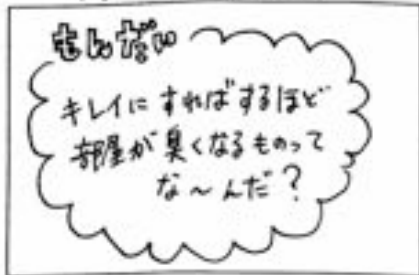 もんだい
キレイにすればするほど
部屋が臭くなるものって
な〜んだ?